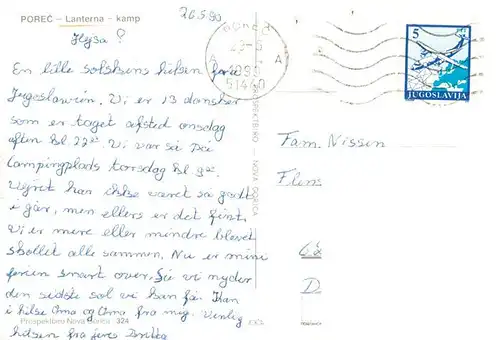 POREČ – Lanterna – kamp
26.5.90
Hejsa!
En lille solskins hilsen fra
Jugoslavien. Vi er 13 dansker
som er taget afsted onsdag
aften kl 22⁰⁰. Vi var så på
Campingplads torsdag kl. 9
Vejret har ikke været så godt
i går, men ellers er det fint.
Vi er mere eller mindre blevet
skollet alle sammen. Nu er min
ferien snart over, så vi nyder
den sidste sol vi kan få. Kan
i hilse Oma og Oma fra mig. Venlig
hilsen fra jeres
Prospektbiro Nova Gorica 324
POREČ
1990
51440
A A
5
JUGOSLAVIJA
PROSPEKTBIRO NOVA GORICA
Fam. Nissen
Flens
D